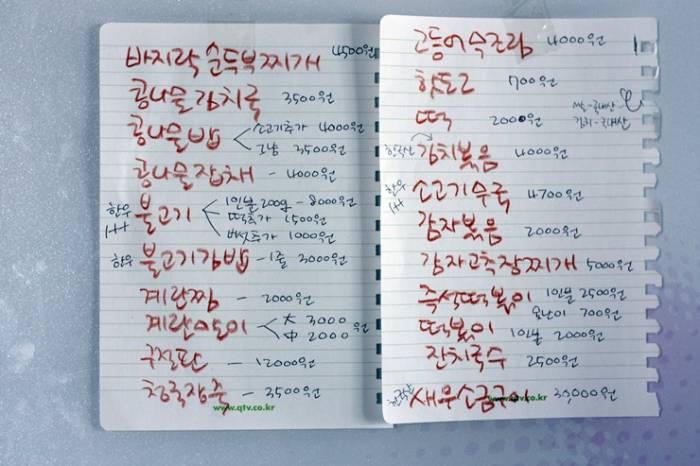 바지락 순두부찌개 4500원
콩나물김치국 3500원
콩나물밥 소고기추가 4000원
그냥 3500원
콩나물잡채 - 4000원
한우 불고기 1인분 200g - 8000원
1++ 떡추가 1500원
버섯추가 1000원
한우 불고기김밥 - 1줄 3000원
계란찜 - 2000원
계란말이 大 3000원
中 2000
구절판 - 12000원
청국장죽 - 3500원
www.qtv.co.kr
고등어무조림 4000원
핫도그 700원
떡 2000원
쌀-국내산
김치-국내산
한국산 김치볶음 4000원
한우 1++ 소고기무국 4700원
감자볶음 2000원
감자고추장찌개 5000원
즉석떡볶이 1인분 2500원
700원
떡볶이 1인분 2000원
잔치국수 2500원
새우소금구이 30,000원
www.qtv.co.kr